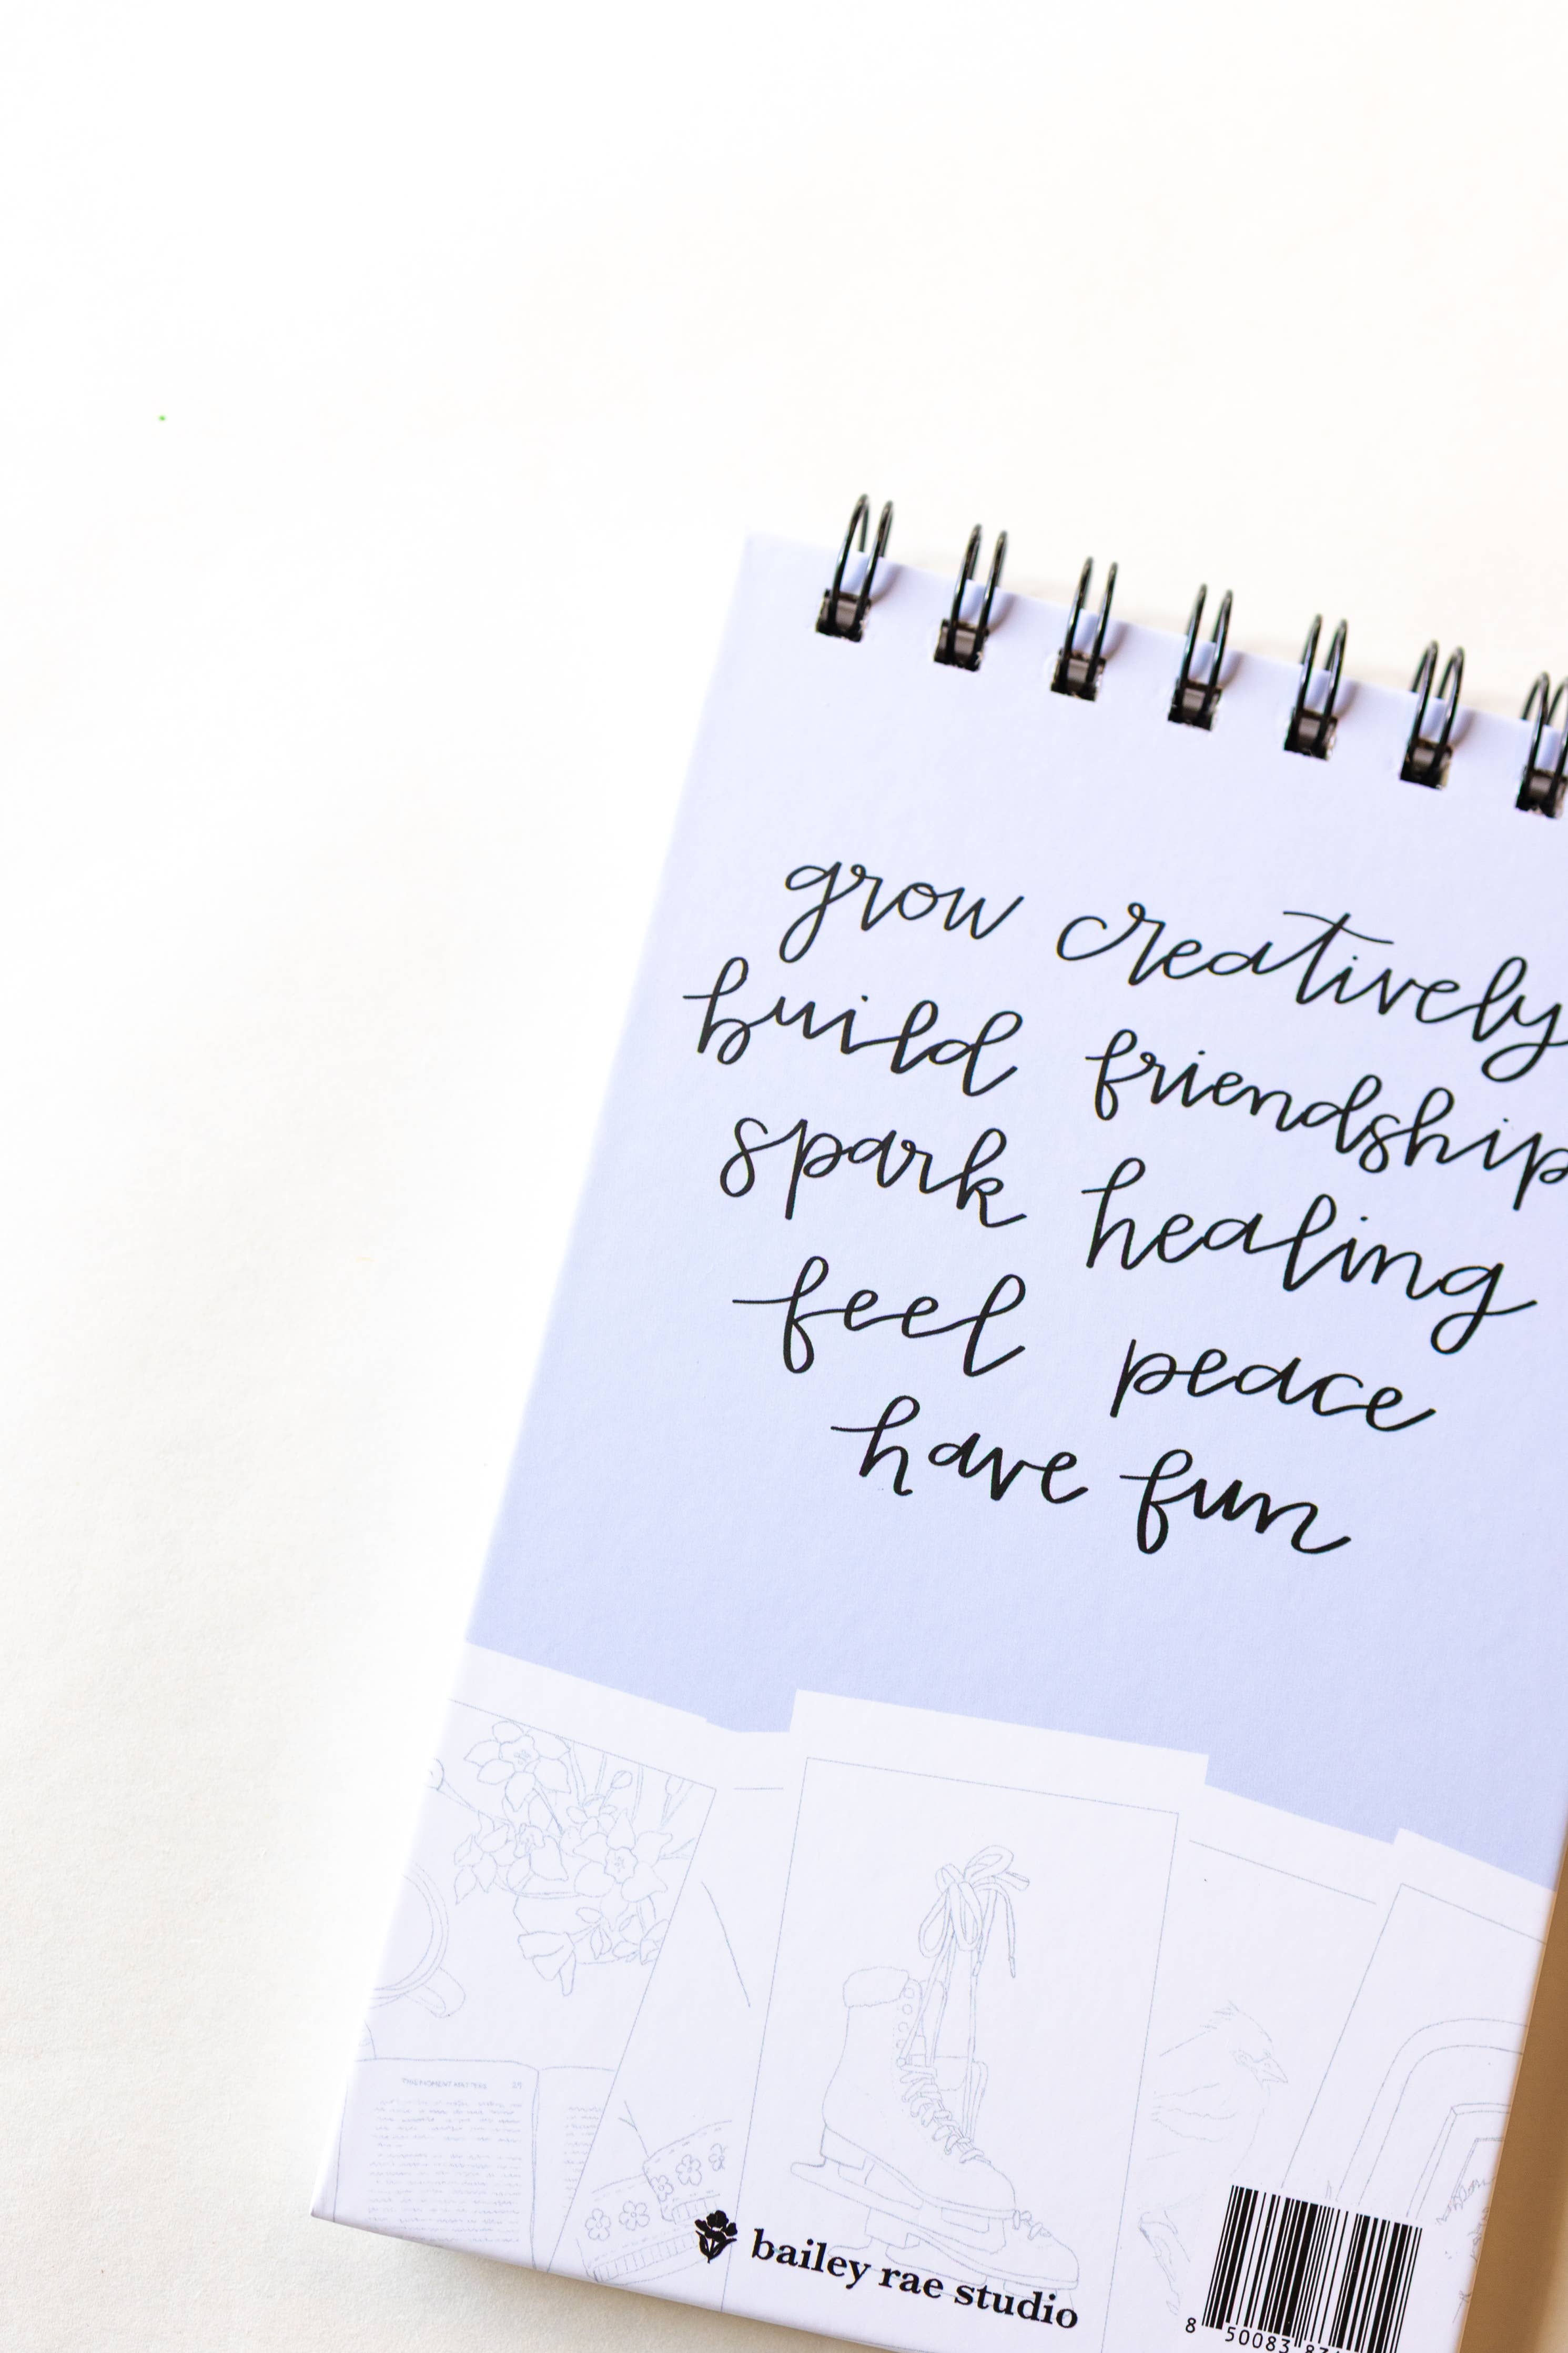 grow creatively
build friendship
spark healing
feel peace
have fun
THIS MOMENT MATTERS
bailey rae studio
8 50083